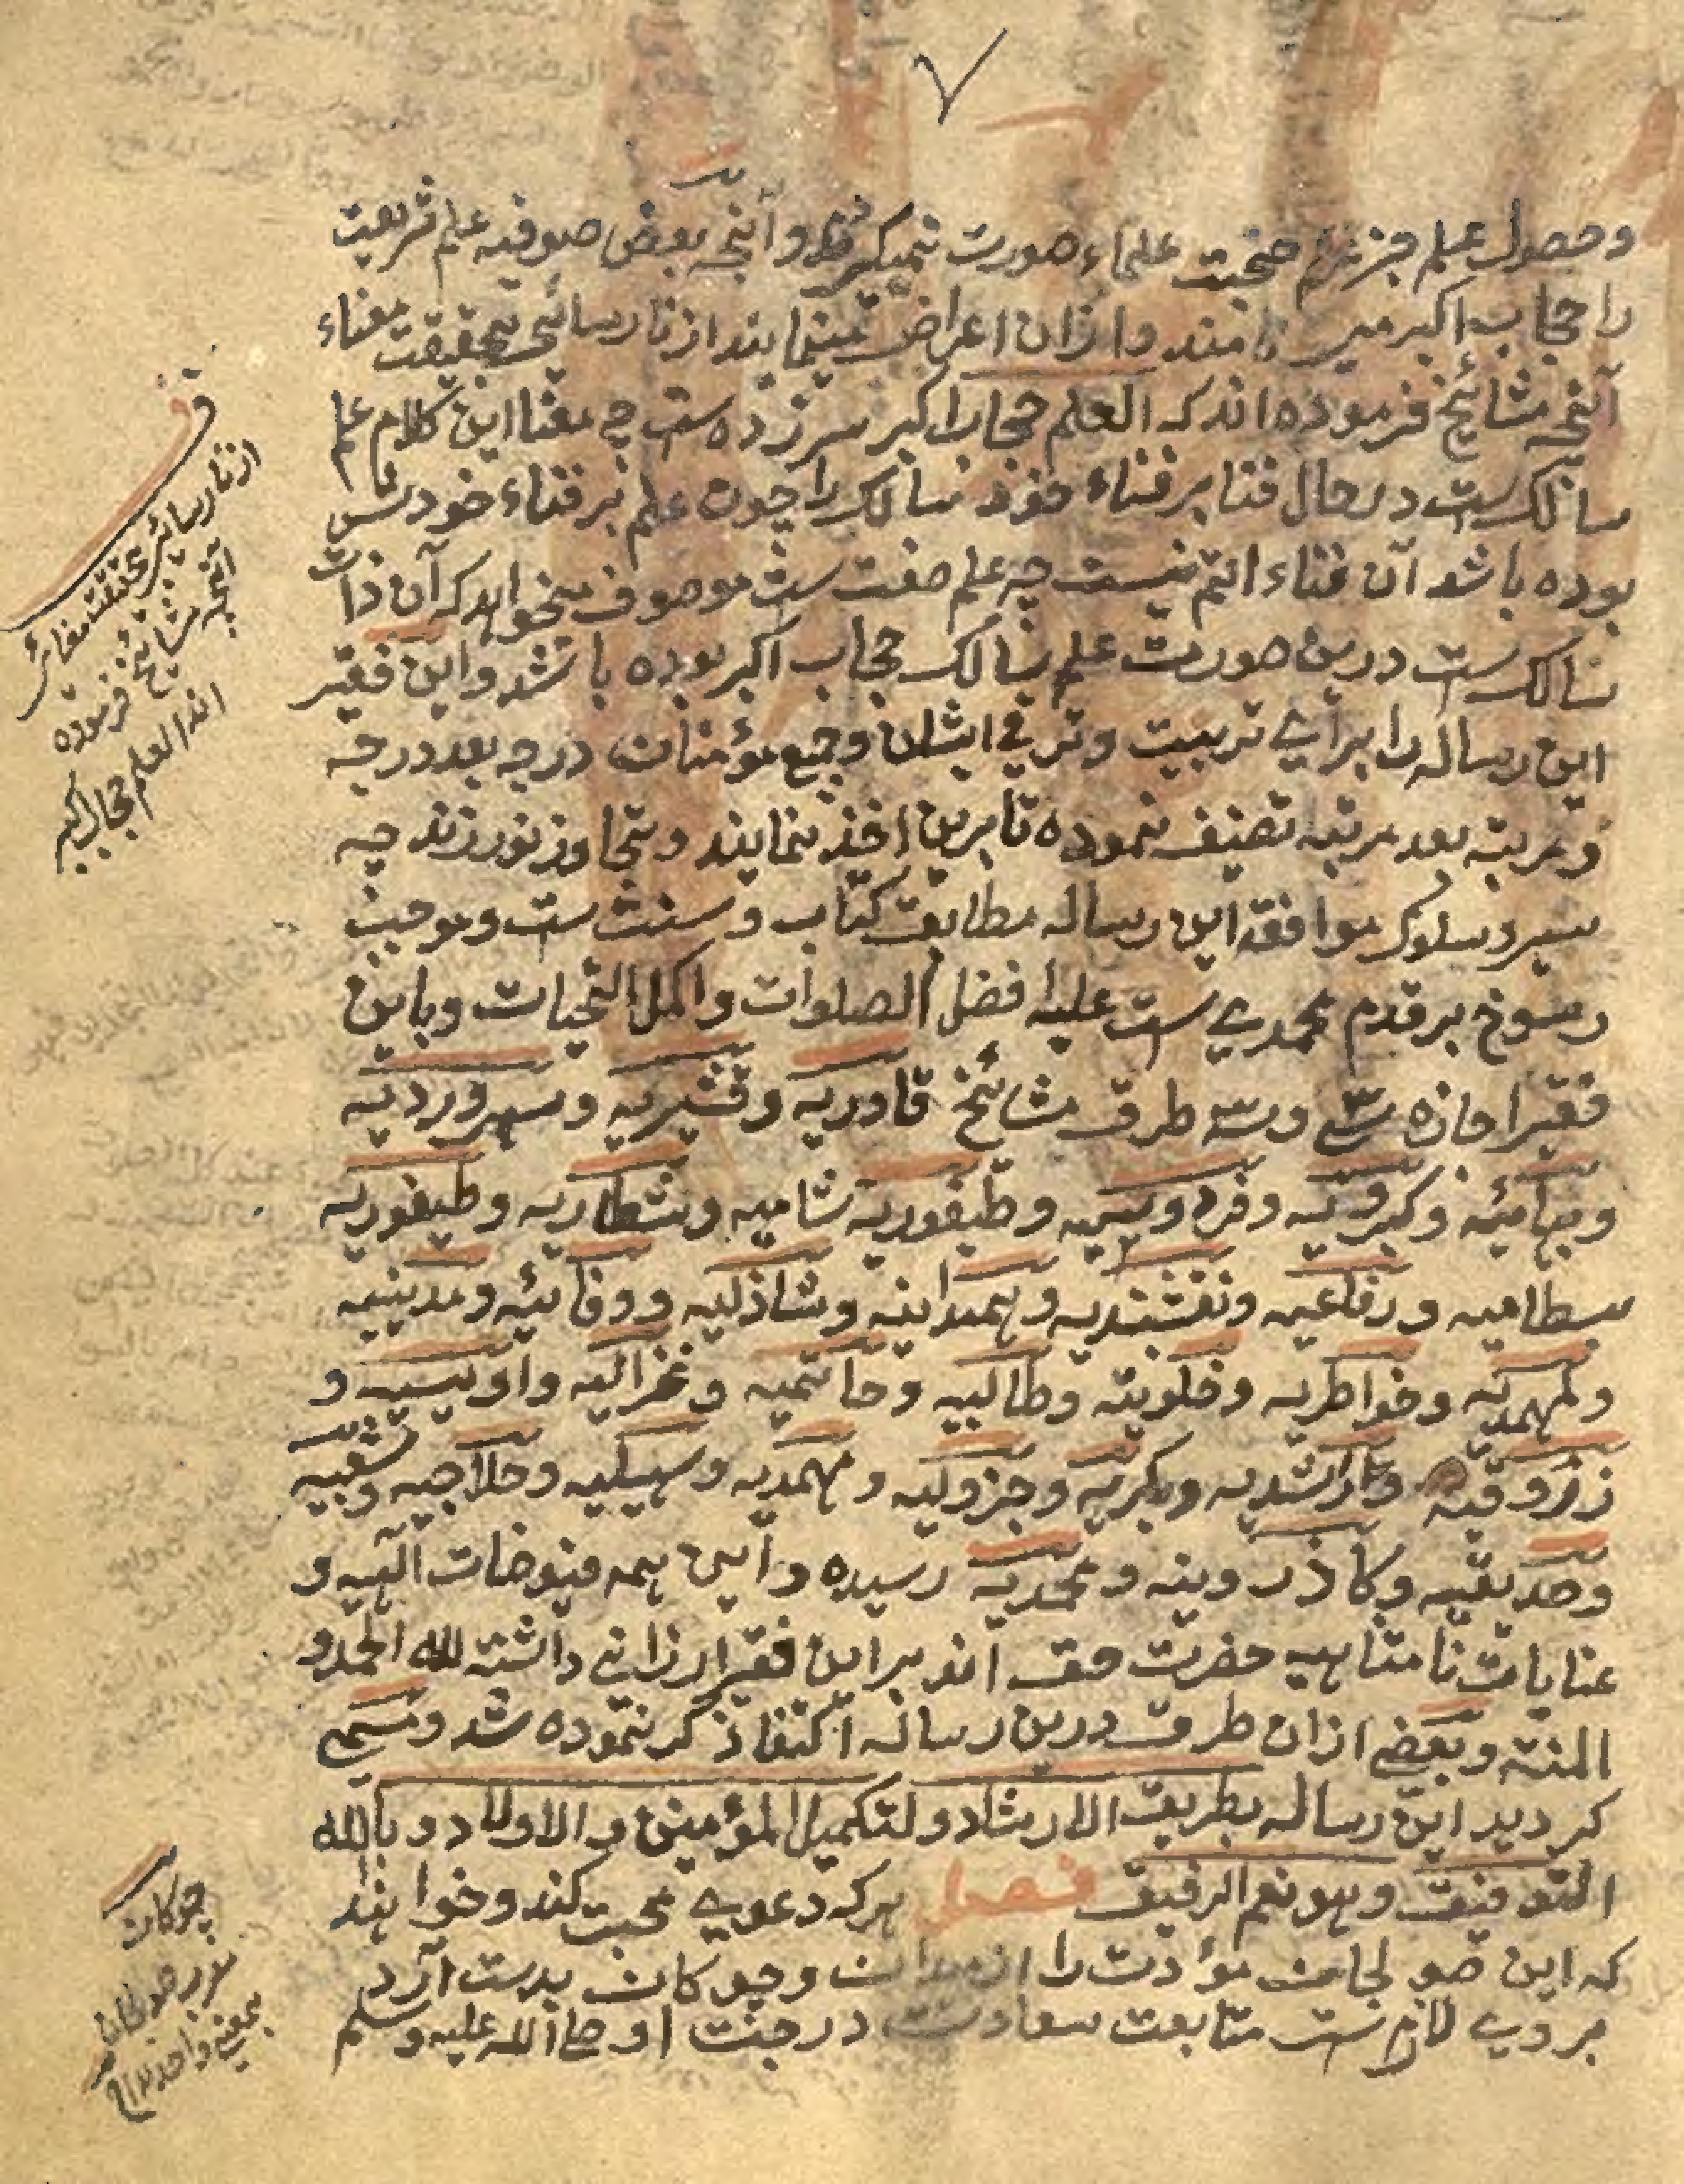 ۷
وحصول علم جز صحبت علماء صورت نمیکیرد وآنچه بعض صوفیه علم شریعت
را حجاب اکبر می نامند وازان اعراض مینمایند از نارسائی بحقیقت معناء
آنچه مشائخ فرموده اند که العلم حجاب اکبر سرزده ست چه معنا این کلام علم
سالک ست در حال فنا بر فناء خود سالک را چون علم بر فناء خودش
بوده باشد آن فناء اتم نیست چه علم صفت ست موصوف میخواهد که آن ذات
سالک ست درین صورت علم سالک حجاب اکبر بوده باشد واین فقیر
این رساله را برای تربیت وترقی ایشان وجمیع مؤمنان درجه بعد درجه
ومرتبه بعد مرتبه تصنیف نموده تا برین اخذ نمایند وتجاوز نورزند چه
سیر وسلوک موافقه این رساله مطابق کتاب وسنت ست وموجب
رسوخ بر قدم محمدی ست علیه افضل الصلوات واکمل التحیات وباین
فقیر اجازه سی وسه طرق مشائخ قادریه وقشیریه وسهروردیه
وکبرویه وفردوسیه وطیفوریه شامیه وشطاریه وطیفوریه
بسطامیه ورفاعیه ونقشبندیه وهمدانیه وشاذلیه ووفائیه ومدینیه
وخواطریه وخلوتیه وطالبیه وحاتمیه وغزالیه واویسیه و
زروقیه وراشدیه وبکریه وجزولیه ومهمدیه وسهیلیه وحلاجیه وشعیبیه
وصدیقیه وکاذرونیه ومحمدیه رسیده واین همه فیوضات الهیه و
عنایات نامتناهیه حضرت حق اند بر این فقیر ارزانی داشته لله الحمد و
المنته وبعضی ازان طرق درین رساله اکتفا ذکر نموده شد ومسمی
کردید این رساله بطریق الارشاد ولتکمیل المؤمنین والاولاد وبالله
التوفیق وهو نعم الرفیق فصل هرکه دعوی محبت کند وخواهند
که این صولجان مؤدت را از میدان وچوکان بدست آرد
بر وی لازم ست متابعت سعادت در جنت او صلی الله علیه وسلم
ق
از نارسائی بحقیقت معنای
آنچه مشایخ فرموده
اند العلم حجاب اکبر
چوکان
صولجان
بمعنی واحد